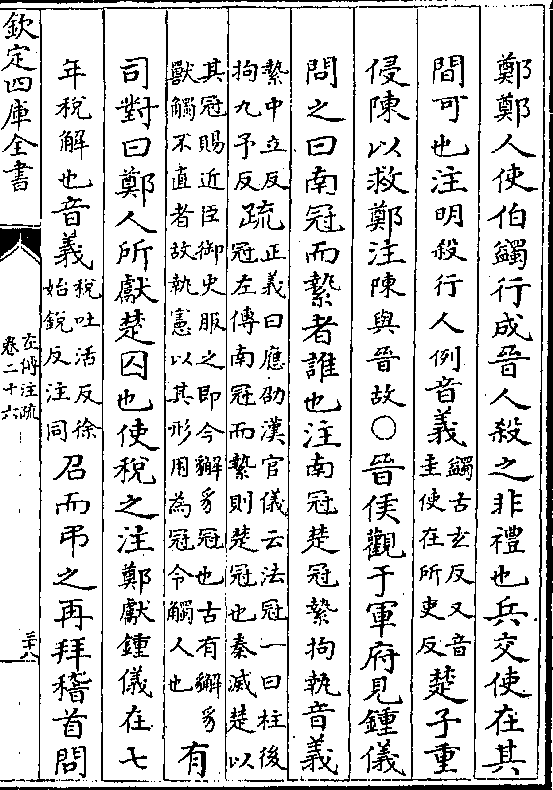 鄭鄭人使伯蠲行成晉人殺之非禮也兵交使在其
間可也注明殺行人例音義蠲古玄反又音圭使在所吏反楚子重
侵陳以救鄭注陳與晉故○晉侯觀于軍府見鍾儀
問之曰南冠而縶者誰也注南冠楚冠縶拘執音義
縶中立反拘九予反疏正義曰應劭漢官儀云法冠一曰柱後冠左傳南冠而縶則楚冠也秦滅楚以
其冠賜近臣御史服之即今獬豸冠也古有獬豸獸觸不直者故執憲以其形用為冠令觸人也有
司對曰鄭人所獻楚囚也使稅之注鄭獻鍾儀在七
年稅解也音義稅吐活反徐始銳反注同召而弔之再拜稽首問
欽定四庫全書
左傳注疏
卷二十六
三十八